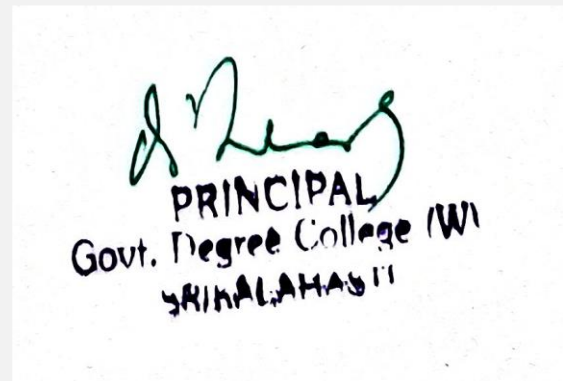 PRINCIPAL
Govt. Degree College (W)
SRIKALAHASTI